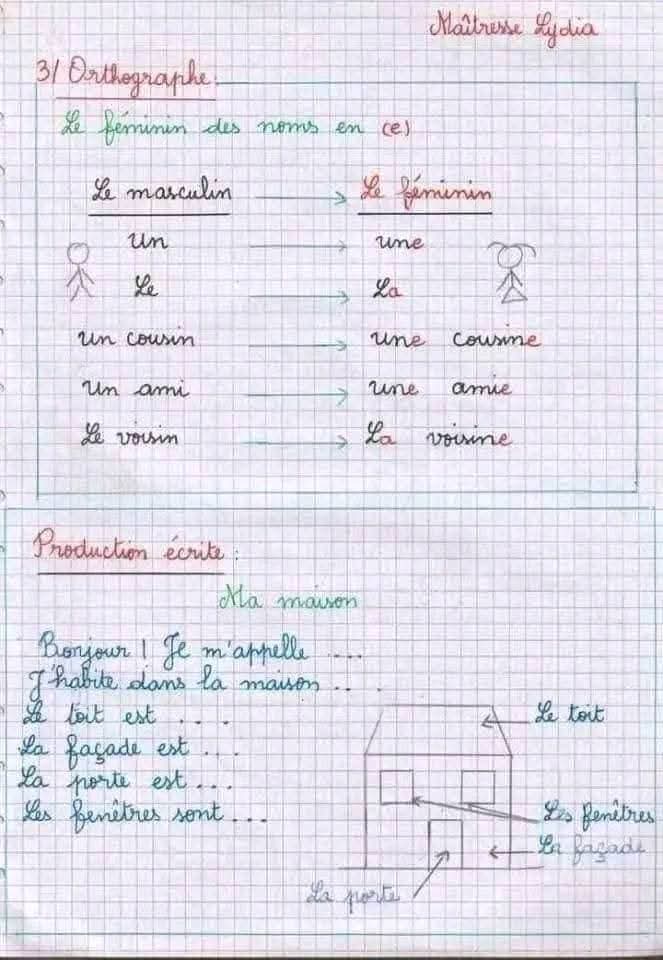 Maîtresse Lydia
3/ Orthographe:
Le féminin des noms en (e)
Le masculin → Le féminin
un → une
Le → La
un cousin → une cousine
Un ami → une amie
Le voisin → La voisine
Production écrite :
Ma maison
Bonjour ! Je m'appelle ....
J'habite dans la maison ...
Le toit est ....
La façade est ...
La porte est ...
Les fenêtres sont ...
Le toit
Les fenêtres
La façade
La porte